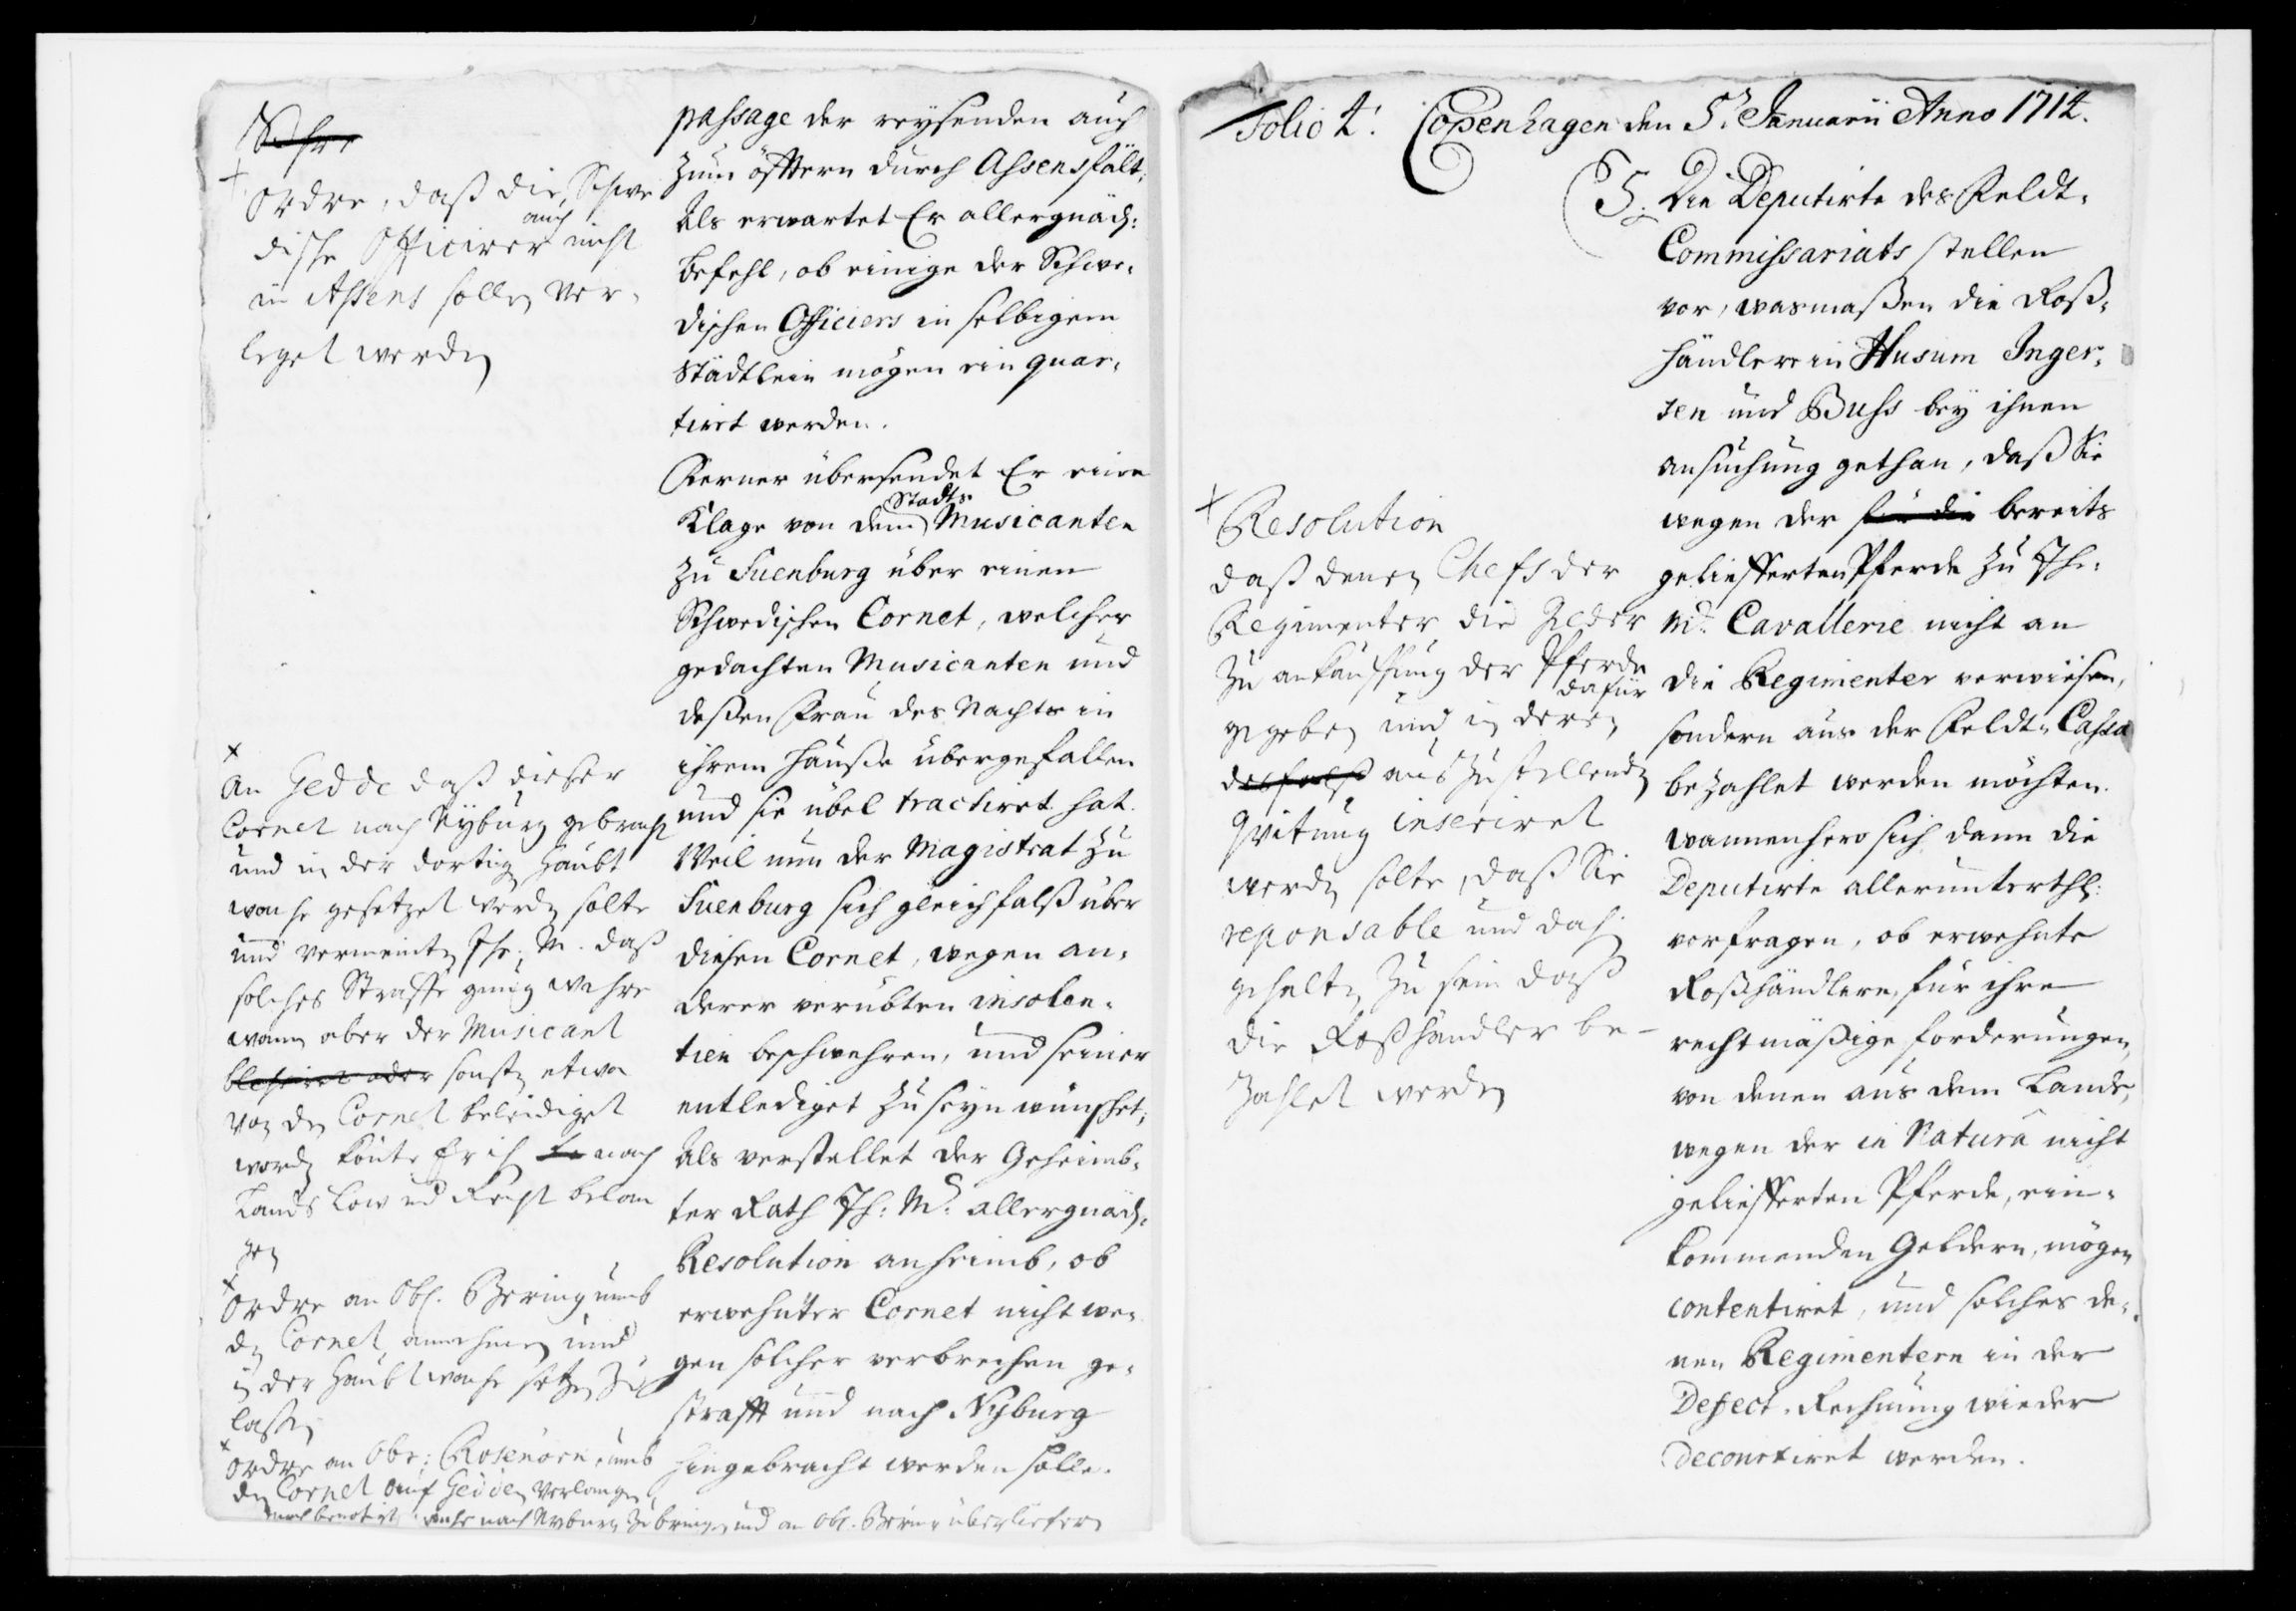 ordre, daß die Schwe
dische Officirer auch nicht
in Assens sollen ver-
leget werden
passage der reysenden auch
zum öfftern durch Assens fält,
Als erwartet Er allergnäd:
befehl, ob einige der Schwe-
dischen Officiers in selbigem
Städtlein mögen ein quar-
tiret werden.
Ferner übersendet Er eine
Klage von dem Stadts Musicanten
zu Suenburg über einen
Schwedischen Cornet, welcher
gedachten Musicanten und
deßen Frau des Nachts in
ihrem Hauße übergefallen
und sie übel tractiret hat.
Weil nun der Magistrat zu
Suenburg sich gleichfalß über
diesen Cornet, wegen an-
derer verübten insolen-
tien beschwehren, und seiner
entlediget zu seyn wünschet,
Als verstellet der Geheimb-
ter Rath Ih: M: allergnäd:
Resolution anheimb, ob
erwehnter Cornet nicht we-
gen solcher verbrechen ge-
strafft und nach Nyburg
hingebracht werden solle.
An Gedde daß dieser
Cornet nach Nyburg gebracht
und in der dortigen Haubt
wache gesetzet werden solte
und vermeinten Ihr. M. daß
solches Straffe genug wehre
wann aber der Musicant
bleßiret oder sonsten etwa
von den Cornet beleidiget
worden könte Er ih nach
Lands Low und Recht belan
gen
Ordre an Obl. Bering umb
den Cornet annehmen und
in der Haubtwache setzen zu
laßen
ordre an Obr: Rosenörn, umb
den Cornet auf Gedden verlangen,
nach Nyburg zu bringen und an Obl. Bering überliefern
Folio 4. Copenhagen den 5. Januarii Anno 1714.
5. Die Deputirte des Feldt-
Commissariats stellen
vor, wasmaßen die Roß-
händlere in Husum Inger-
sen und Buss bey ihnen
ansuchung gethan, daß Sie
wegen der für die bereits
geliefferten Pferde zu Ihr.
M: Cavallerie nicht an
die Regimenter verwiesen,
sondern aus der Feldt-Cassa
bezahlet werden möchten.
wannenhero sich dann die
Deputirte allerunterthl:
verfragen, ob erwehnte
Roßhändlere, für ihre
rechtmäßige forderungen,
von denen aus dem Lande,
wegen der in Natura nicht
geliefferten Pferde, ein-
kommenden Geldern, mögen
contentiret, und solches de-
nen Regimentern in der
Defect-Rechnung wieder
decourtiret werden.
Resolution
daß denen Chefs der
Regimenter die Gelder
zu ankauffung der Pferde
gegeben und in deren dafür
desfalß auszustellenden
Qvitung inseriret
werden solte, daß Sie
reponsable und dah
gehalten zu sein daß
die Roßhändler be-
zahlet werden